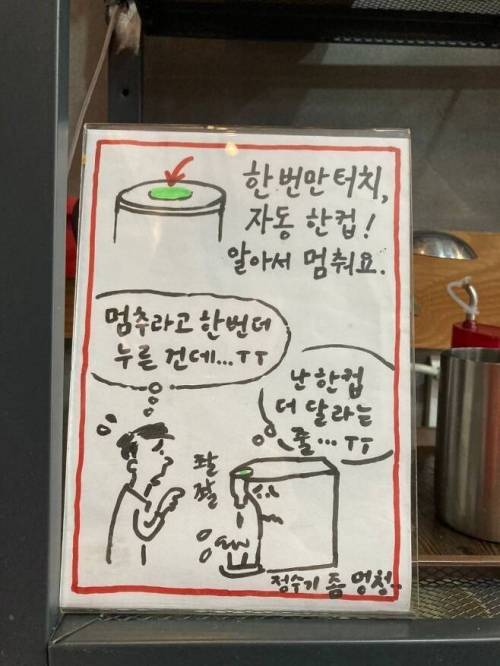 한 번만 터치,
자동 한컵!
알아서 멈춰요.
멈추라고 한번더
누른 건데...ㅠㅠ
난 한컵
더 달라는
줄...ㅠㅠ
콸
콸
정수기 좀 멍청..